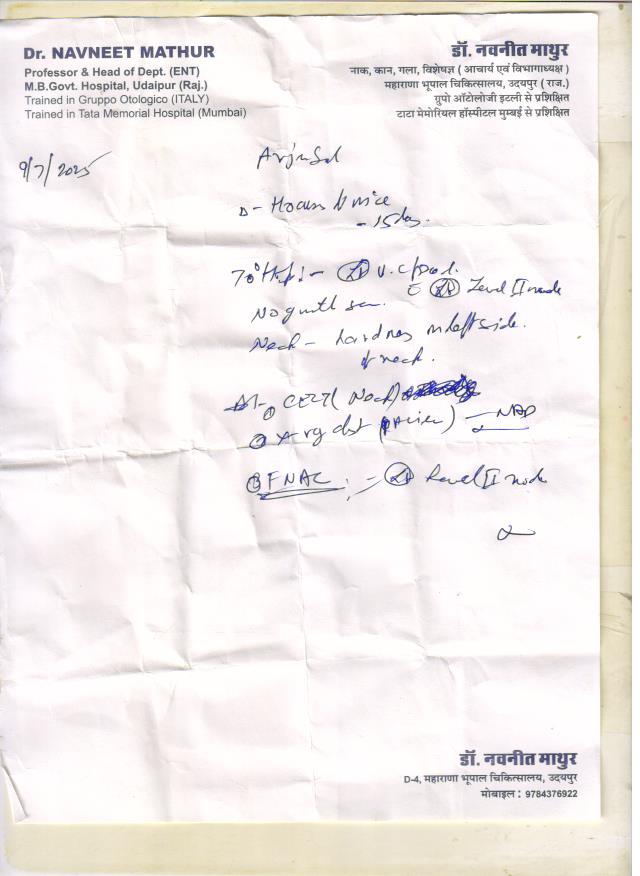 Dr. NAVNEET MATHUR
Professor & Head of Dept. (ENT)
M.B.Govt. Hospital, Udaipur (Raj.)
Trained in Gruppo Otologico (ITALY)
Trained in Tata Memorial Hospital (Mumbai)
डॉ. नवनीत माथुर
नाक, कान, गला, विशेषज्ञ ( आचार्य एवं विभागाध्यक्ष )
महाराणा भूपाल चिकित्सालय, उदयपुर ( राज.)
ग्रुपो ऑटोलोजी इटली से प्रशिक्षित
टाटा मेमोरियल हॉस्पीटल मुम्बई से प्रशिक्षित
9/7/2025
voice
- 15 day.
70°
Level II node
No growth
Neck - hardness in left side
of neck.
① CECT (Neck)
② X ray chest - NAD
③ FNAC :- Level II node
डॉ. नवनीत माथुर
D-4, महाराणा भूपाल चिकित्सालय, उदयपुर
मोबाइल : 9784376922